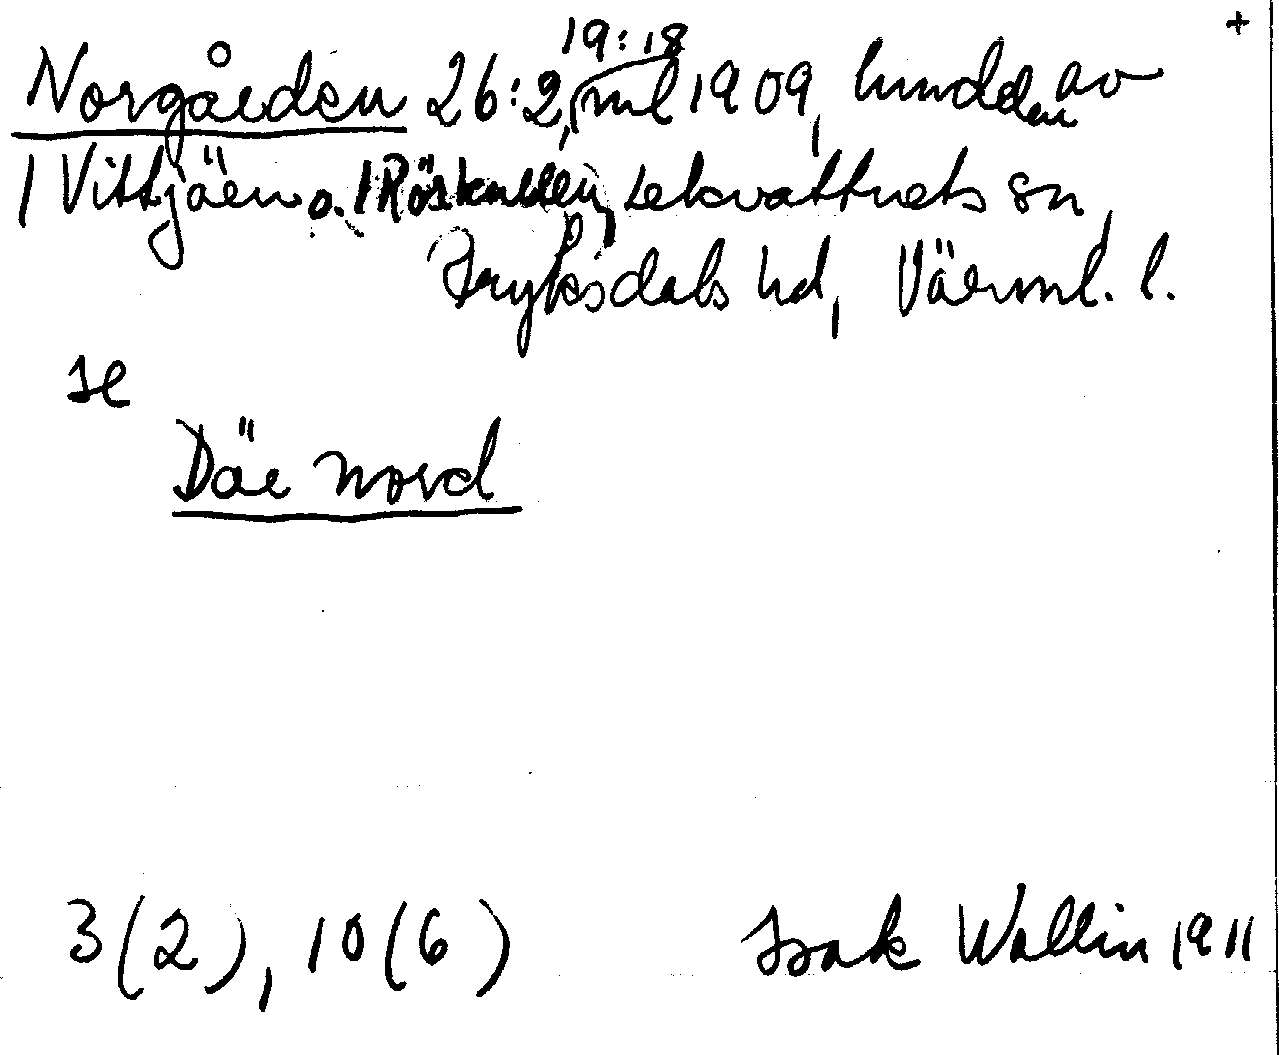 +
19:18
Norgården 26:2, ml 1909, bundden av
1 Vittjärn o. 1 Röskullen, Lekvattnets sn
Fryksdals hd, Värml. l.
se
Där nord
3 (2), 10 (6) Isak Wallin 1911